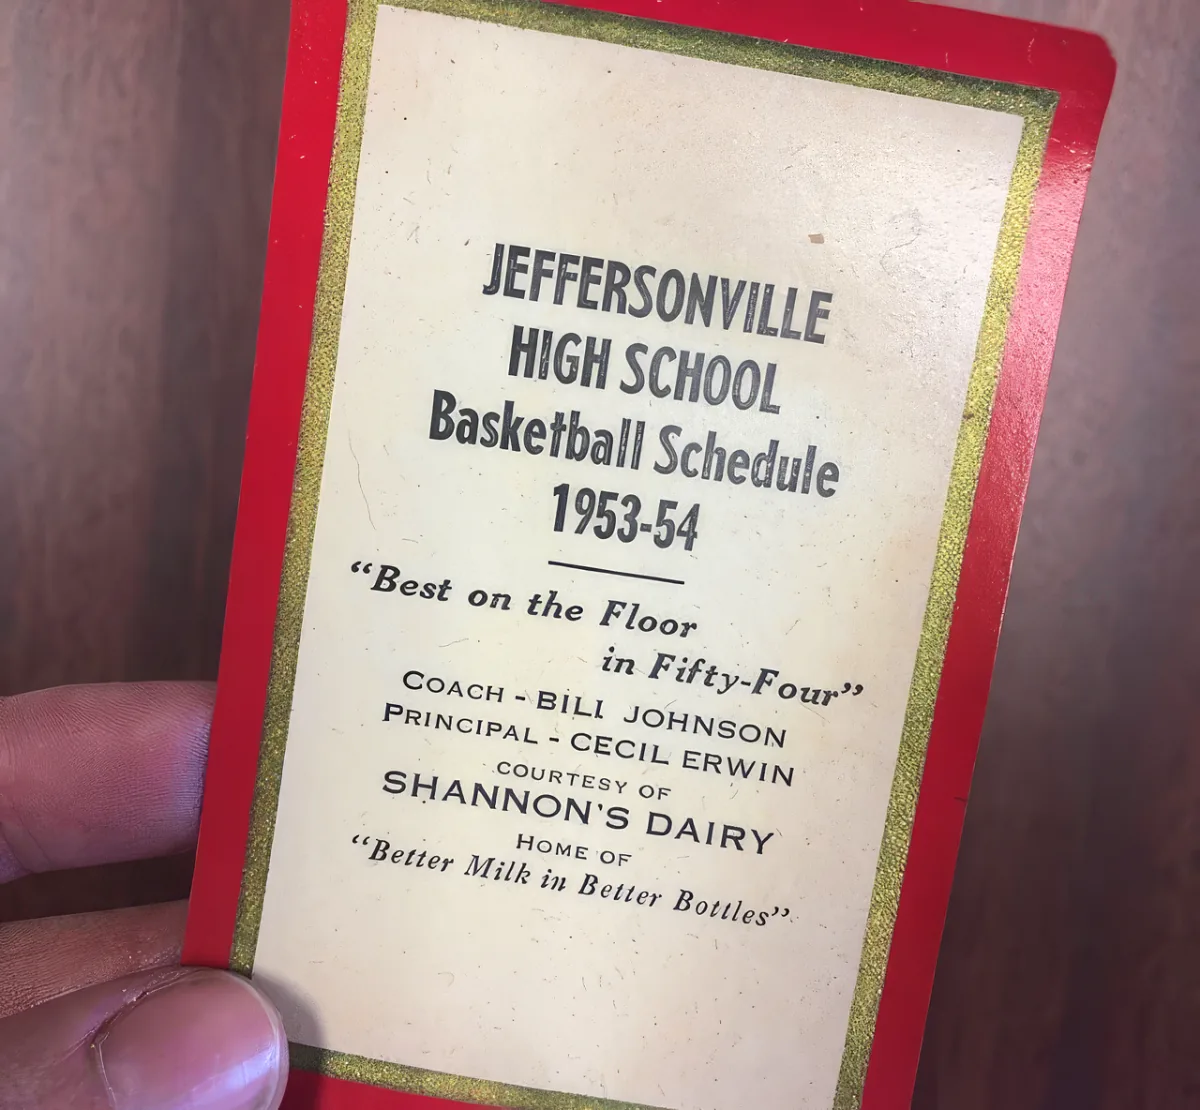 JEFFERSONVILLE
HIGH SCHOOL
Basketball Schedule
1953-54
“Best on the Floor
in Fifty-Four”
COACH - BILL JOHNSON
PRINCIPAL - CECIL ERWIN
COURTESY OF
SHANNON'S DAIRY
HOME OF
“Better Milk in Better Bottles”